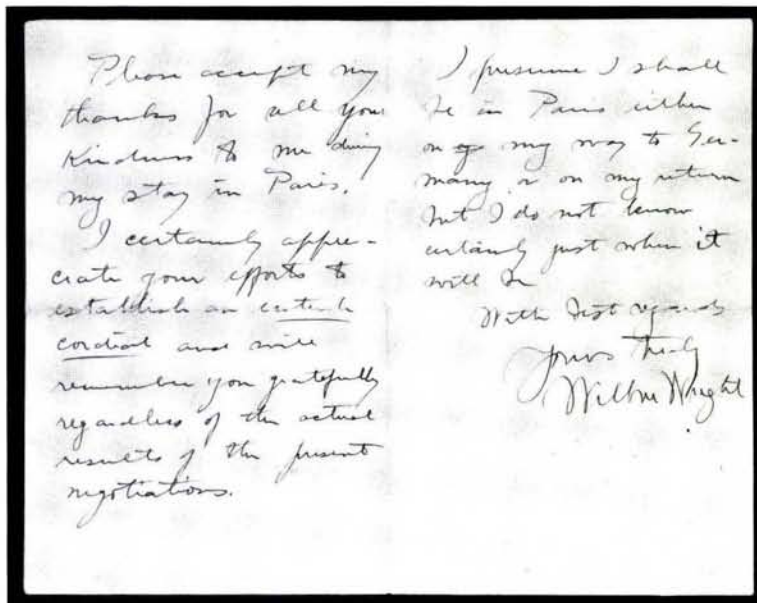 Please accept my
thanks for all your
kindness to me during
my stay in Paris.
I certainly appre-
ciate your efforts to
establish an entente
cordial and will
remember you gratefully
regardless of the actual
results of the present
negotiations.
I presume I shall
be in Paris either
on my way to Ger-
many, or on my return
but I do not know
certainly just when it
will be
With best regards
Yours truly
Wilbur Wright